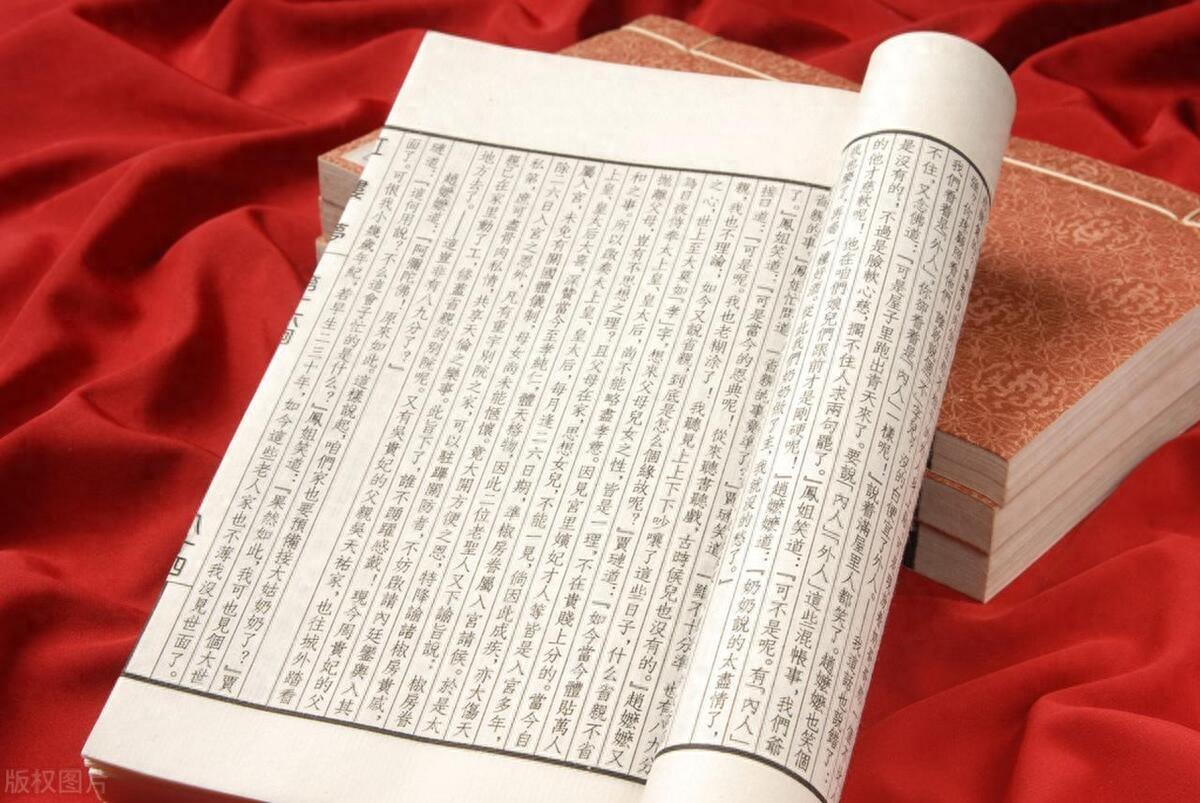 我們看着是「外人」，你却看着是「內人」一樣呢！』說着滿屋里人都笑了。趙嬤嬤也笑個
不住，又念佛道：『可是屋子里跑出青天來了。要說「內人」「外人」這些混帳事，我們爺
是沒有的，不過是臉軟心慈，擱不住人求兩句罷了。』鳳姐笑道：『可不是呢。有「內人」
的他才慈軟呢！他在咱們娘兒們跟前才是剛硬呢！』趙嬤嬤道：『奶奶說的太盡情了，
我也樂了，再喝一鍾好酒。從此我們奶奶做了主，我就沒的愁了。』
省親的事。』鳳姐忙問道：『省親的事竟準了？』賈璉笑道：『雖不十分準，也有八九分
了。』鳳姐笑道：『可是當今的恩典呢！從來聽書聽戲，古時候兒也沒有的。』趙嬤嬤又
接口道：『可是呢。我也老糊涂了！我聽見上上下下吵嚷了這些日子，什么省親不省
親，我也不理論；如今又說省親，到底是怎么個緣故呢？』賈璉道：『如今當今體貼萬人
之心，世上至大莫如「孝」字，想來父母兒女之性，皆是一理，不在貴賤上分的。當今自
為日夜侍奉太上皇、皇太后，尚不能略盡孝意。因見宮里嬪妃才人等皆是入宮多年，
拋離父母，豈有不思想之理？且父母在家，思想女兒，不能一見，倘因此成疾，亦大傷天
和之事。所以啟奏太上皇、皇太后，每月逢二六日期，準椒房眷屬入宮請候。於是太
上皇、皇太后大喜，深贊當今至孝純仁，體天格物，因此二位老聖人又下諭旨說：椒房眷
屬入宮，未免有關國體儀制，母女尚未能愜懷。竟大開方便之恩，特降諭諸椒房貴戚，
除二六日入宮之恩外，凡有重宇別院之家，可以駐蹕關防者，不妨啟請內廷鑾輿入其
私第，庶可盡骨肉私情，共享天倫之樂事。此旨下了，誰不踴躍感戴！現今周貴妃的父
親已在家里動了工，修蓋省親的別院呢。又有吳貴妃的父親吳天祐家，也往城外踏看
地方去了。——這豈非有八九分了？』
趙嬤嬤道：『阿彌陀佛，原來如此。這樣說起，咱們家也要預備接大姑奶奶了？』賈
璉道：『這何用說？不么這會子忙的是什么？』鳳姐笑道：『果然如此，我可也見個大世
面了。可恨我小幾歲年紀，若早生二三十年，如今這些老人家也不薄我沒見世面了。
紅樓夢 第十六回 八四
版权图片